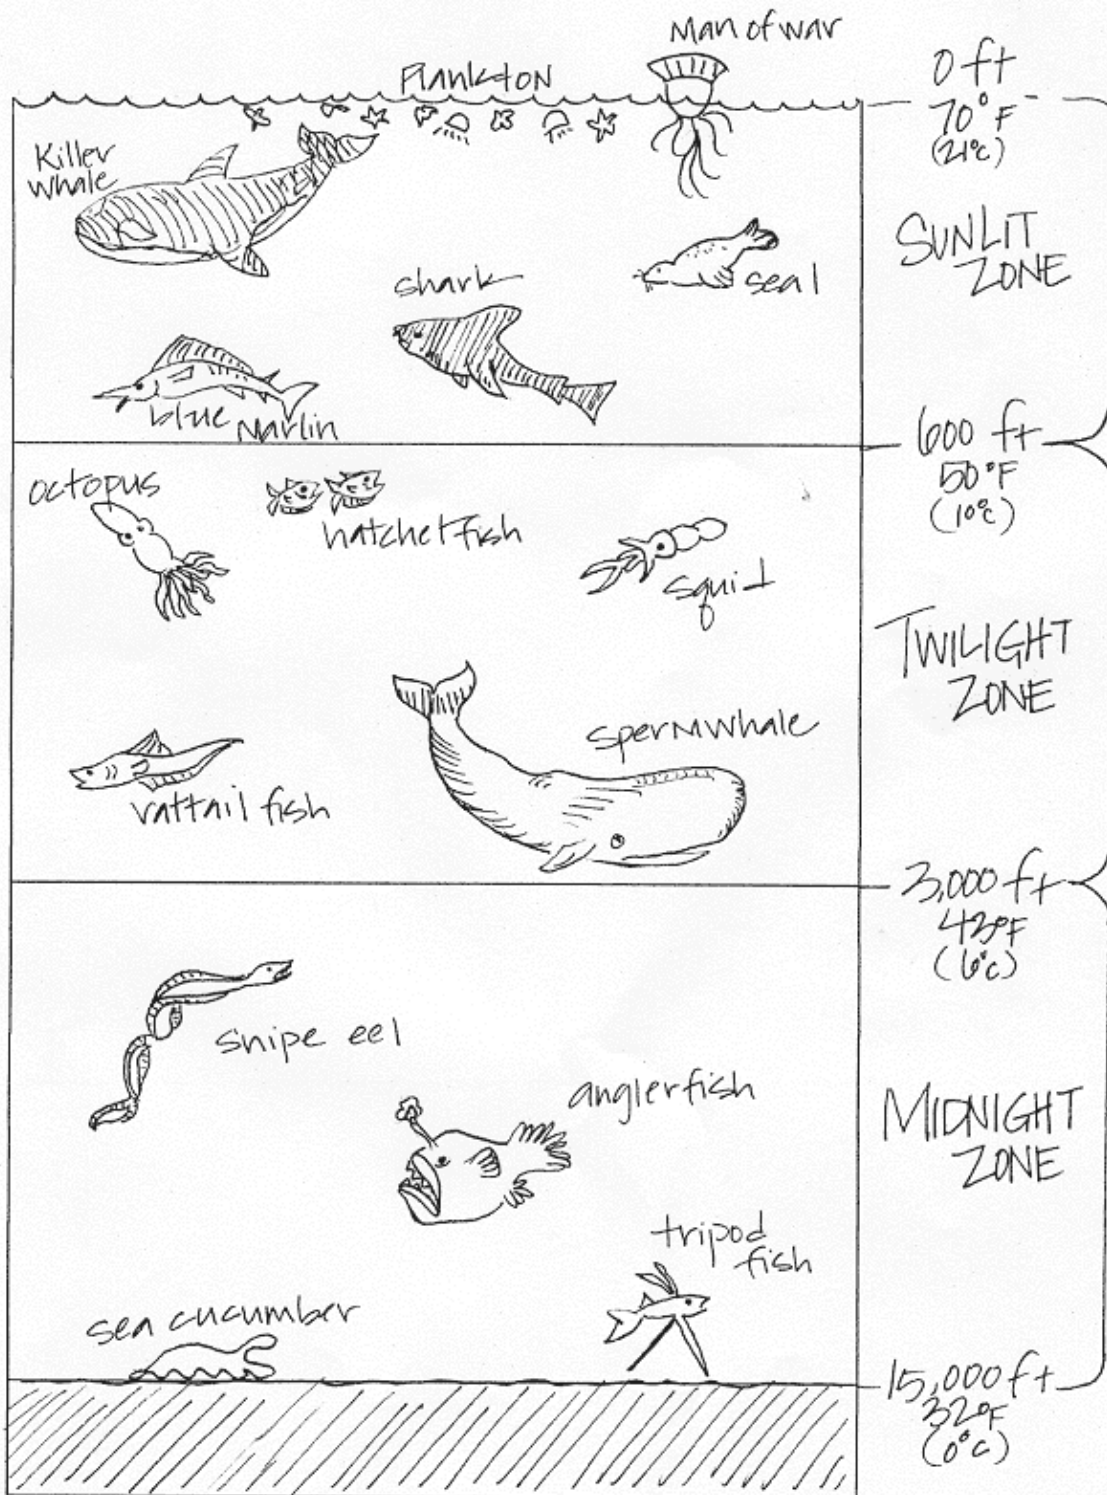 Man of war
Plankton
0 ft
70°F
(21°C)
Killer
Whale
SUNLIT
ZONE
seal
shark
blue Marlin
600 ft
50°F
(10°C)
octopus
hatchetfish
squid
TWILIGHT
ZONE
sperm whale
rattail fish
3,000 ft
43°F
(6°C)
snipe eel
anglerfish
MIDNIGHT
ZONE
tripod
fish
sea cucumber
15,000 ft
32°F
(0°C)